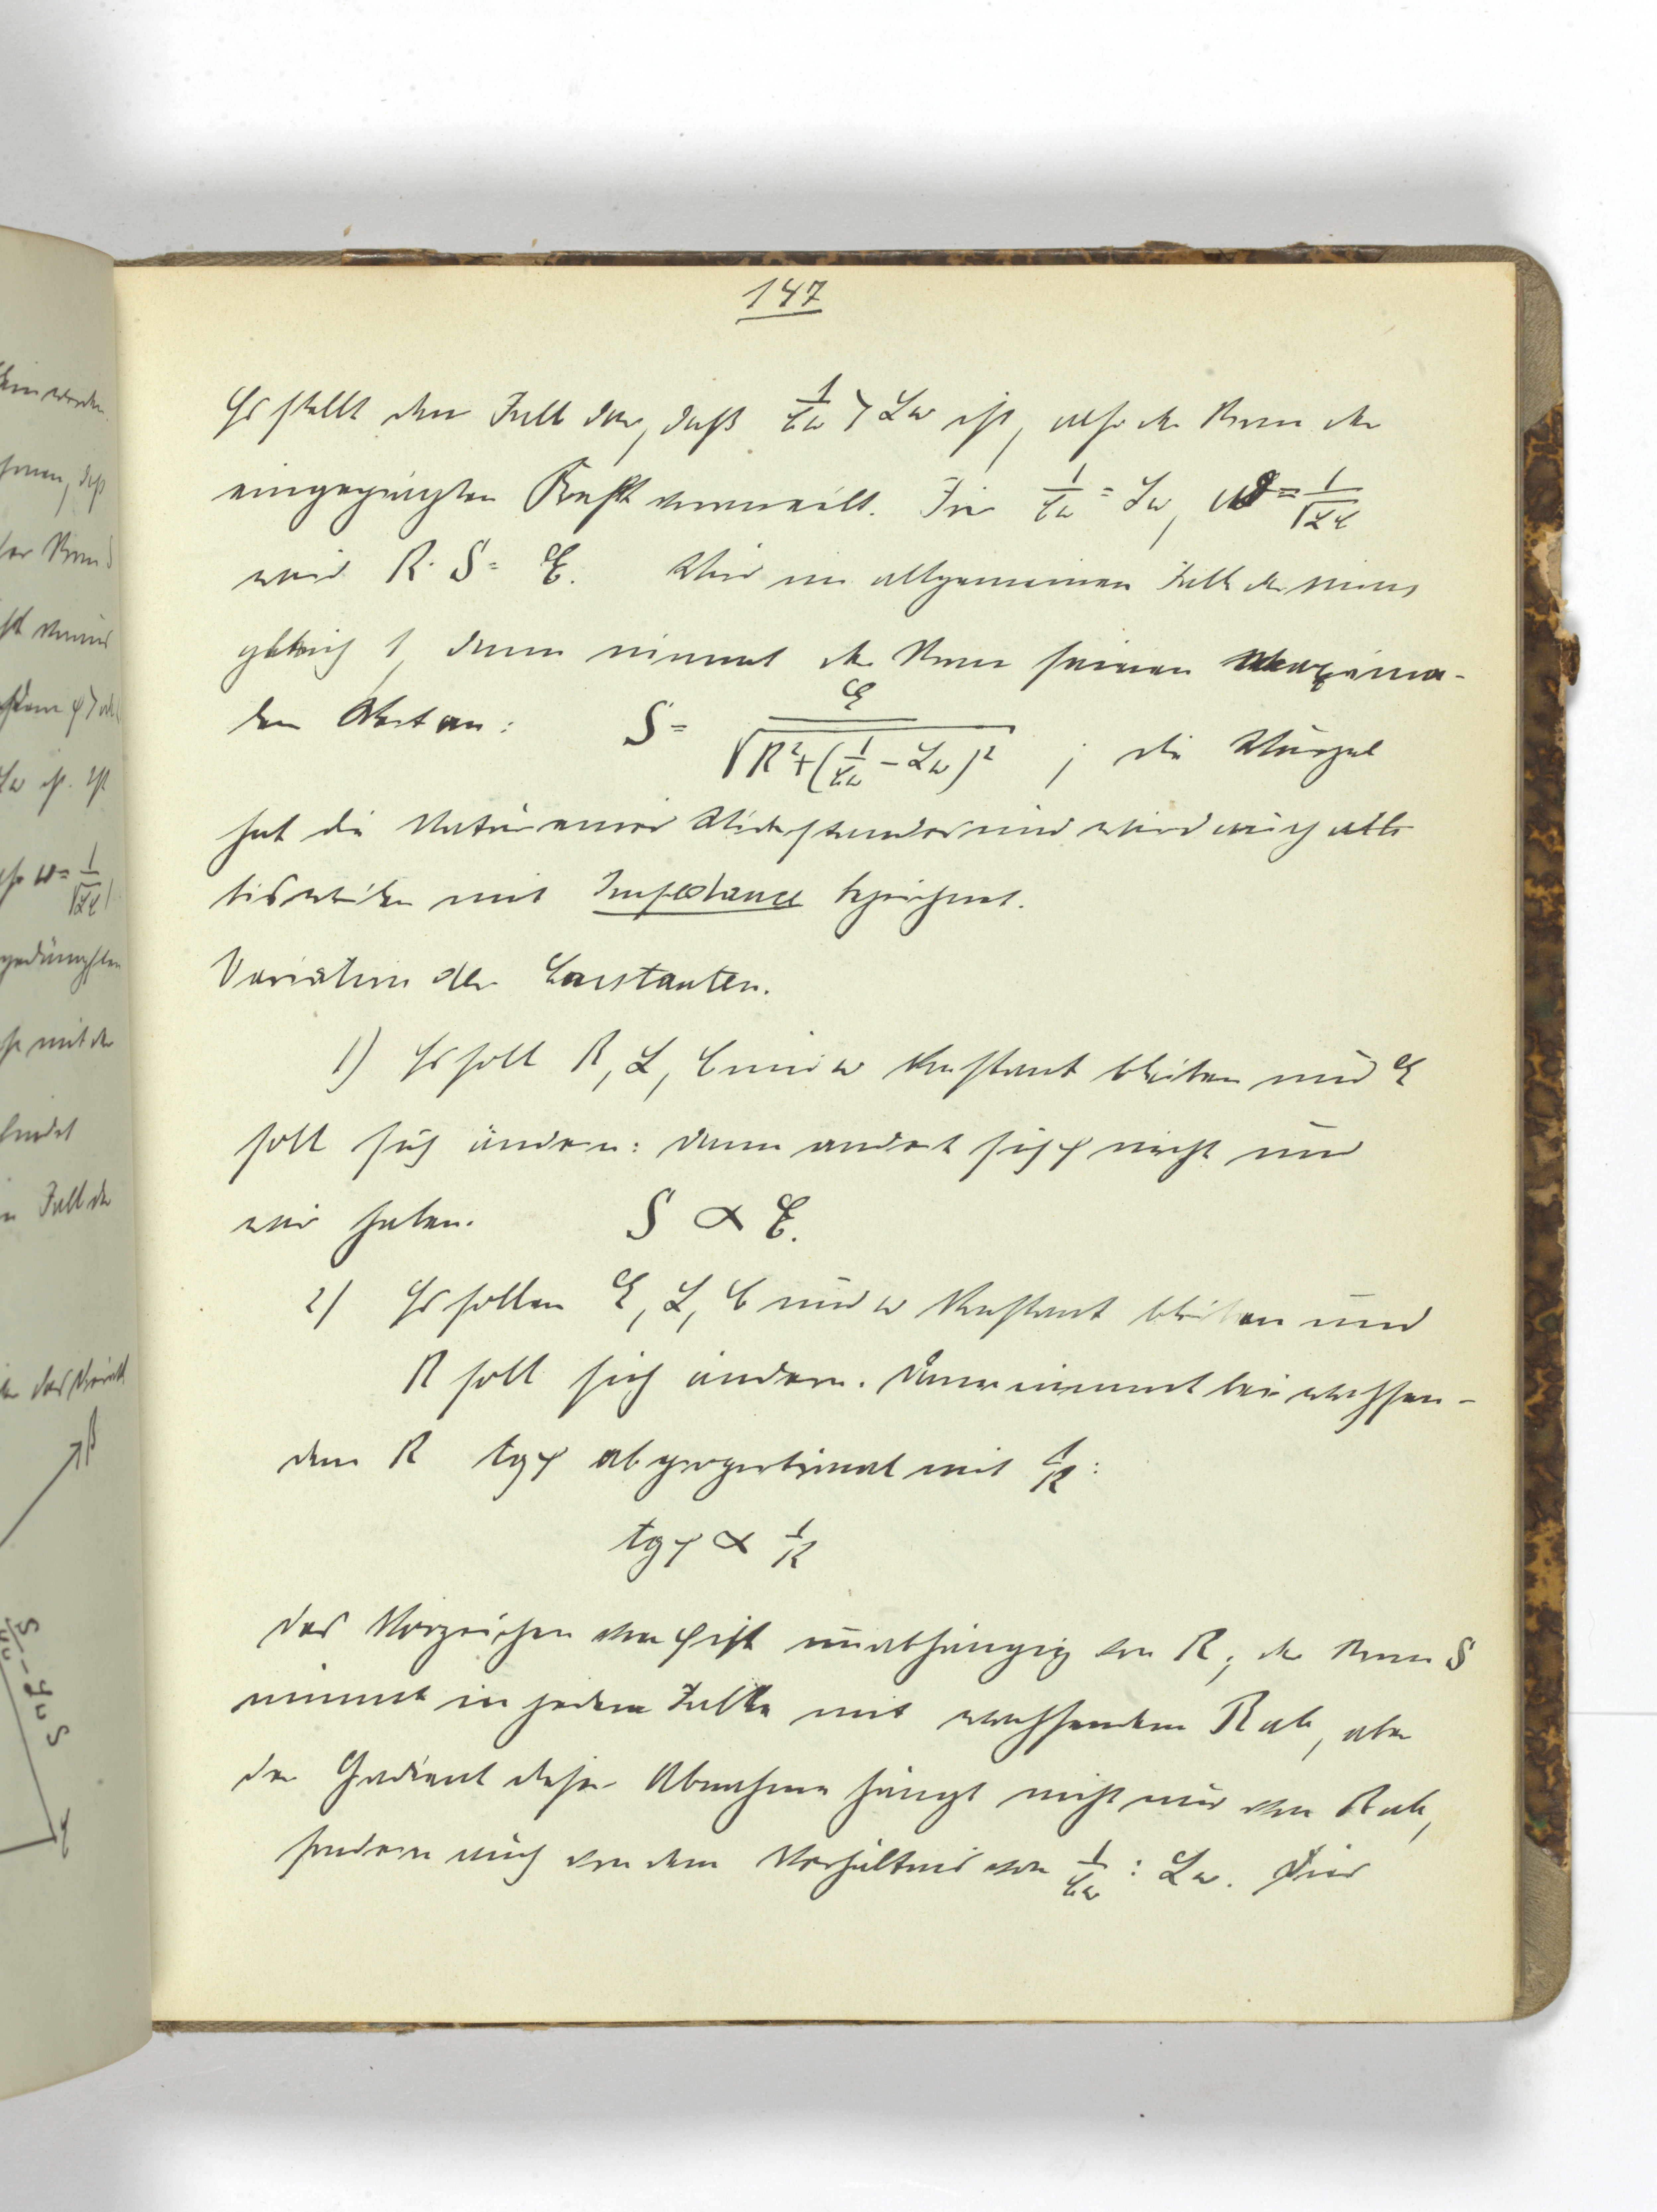 147
Es stellt den Fall dar, daß 1/Cω > Lω ist, also der Strom der
eingeprägten Kraft voraneilt. Für 1/Cω = Lω, ω = 1/√LC
wird R · S = E. Wird im allgemeinen Falle der sinus
gleich 1, dann nimmt der Strom seinen maxima-
len Wert an: S = E/√(R² + (1/Cω − Lω)²) ; die Wurzel
hat die Natur eines Widerstandes und wird auch
bisweilen mit Impedance bezeichnet.
Variation der Constanten.
1) Es soll R, L, C und ω konstant bleiben und E
soll sich ändern: dann ändert sich φ nicht und
wir haben. S ∝ E.
2) Es sollen E, L, C und ω konstant bleiben und
R soll sich ändern. Dann nimmt bei wachsen-
dem R tg φ ab proportional mit 1/R:
tg φ ∝ 1/R
Das Vorzeichen von φ ist unabhängig von R; der Strom S
nimmt in jedem Falle mit wachsendem R ab, aber
der Gradient dieser Abnahme hängt nicht nur von R ab,
sondern auch von dem Verhältnis von 1/Cω : Lω.